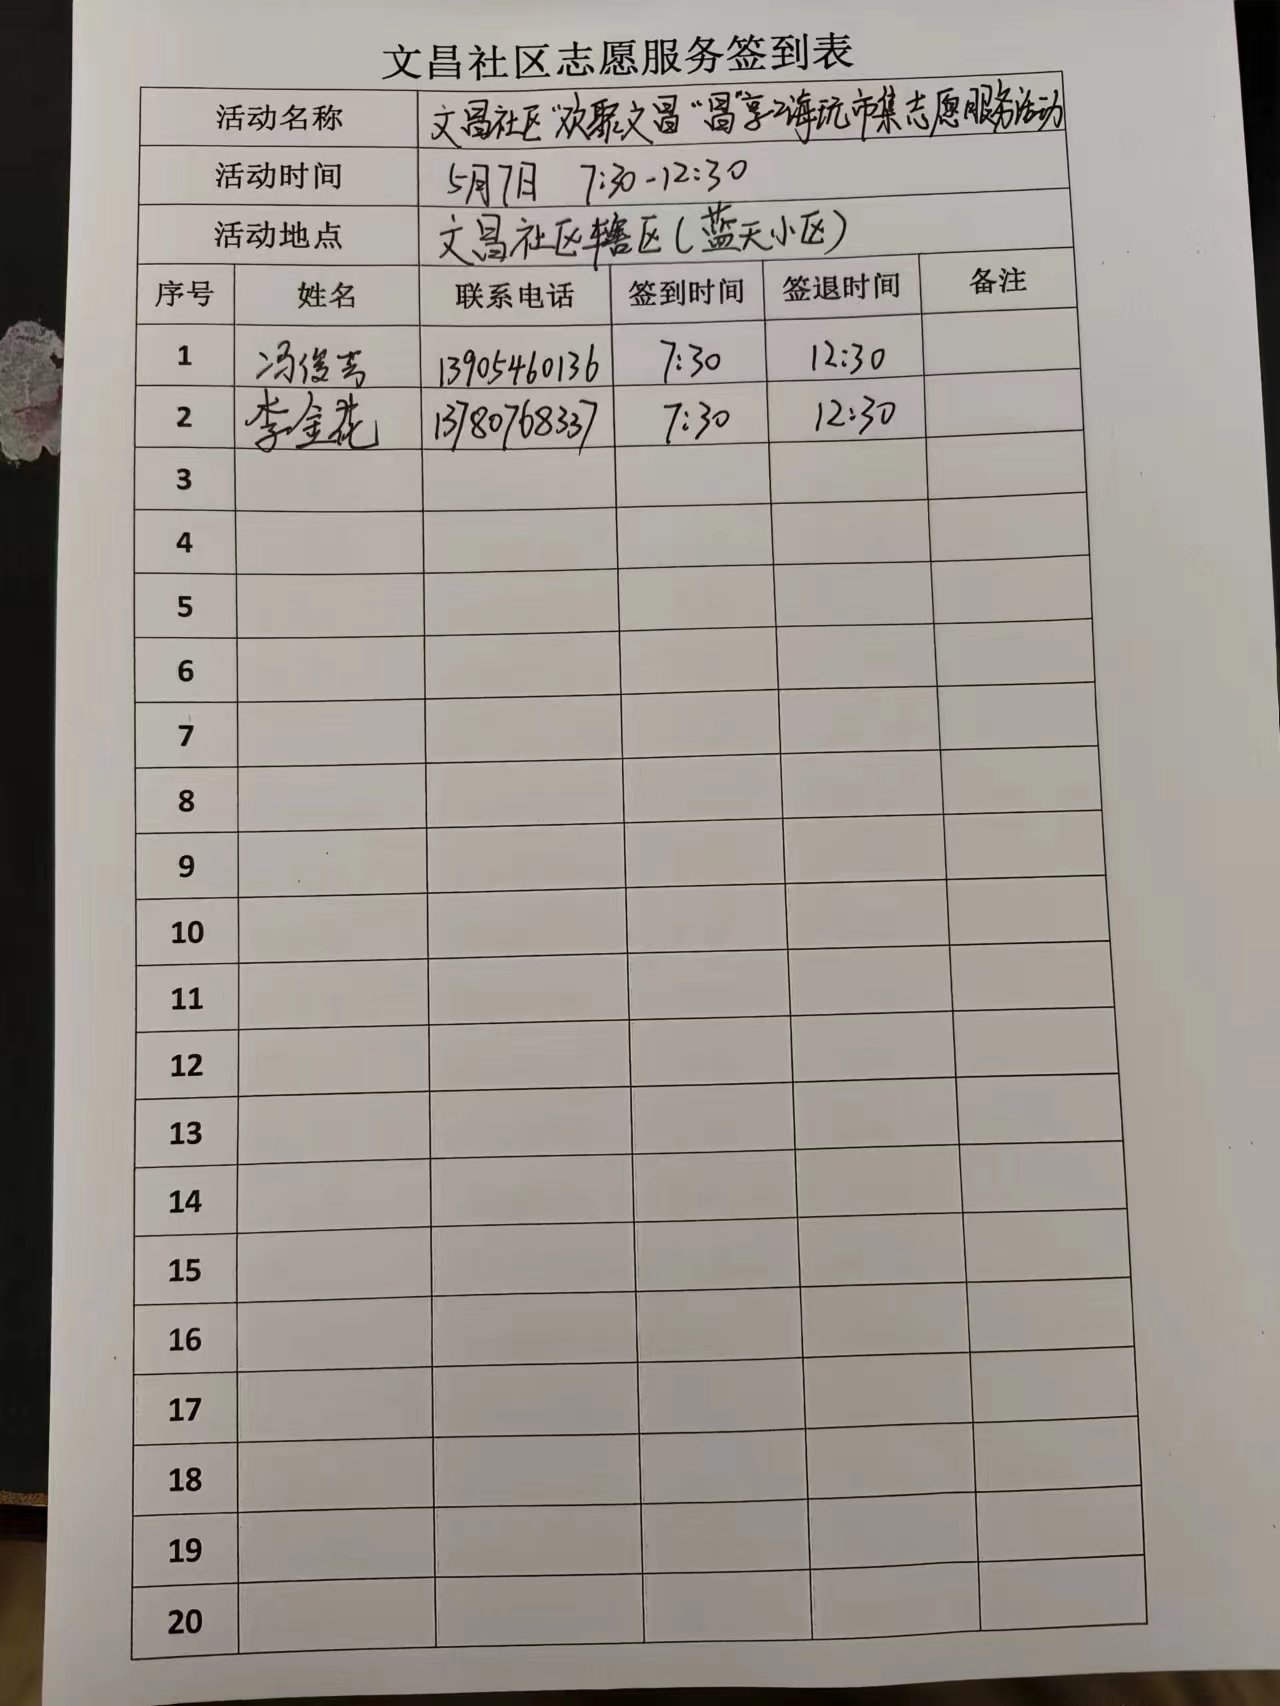 文昌社区志愿服务签到表
活动名称 文昌社区"欢聚文昌"昌"享 海玩市集志愿服务活动
活动时间 5月7日 7:30-12:30
活动地点 文昌社区辖区(蓝天小区)
序号 姓名 联系电话 签到时间 签退时间 备注
1 冯俊 13905460136 7:30 12:30
2 李金花 13780768337 7:30 12:30
3
4
5
6
7
8
9
10
11
12
13
14
15
16
17
18
19
20